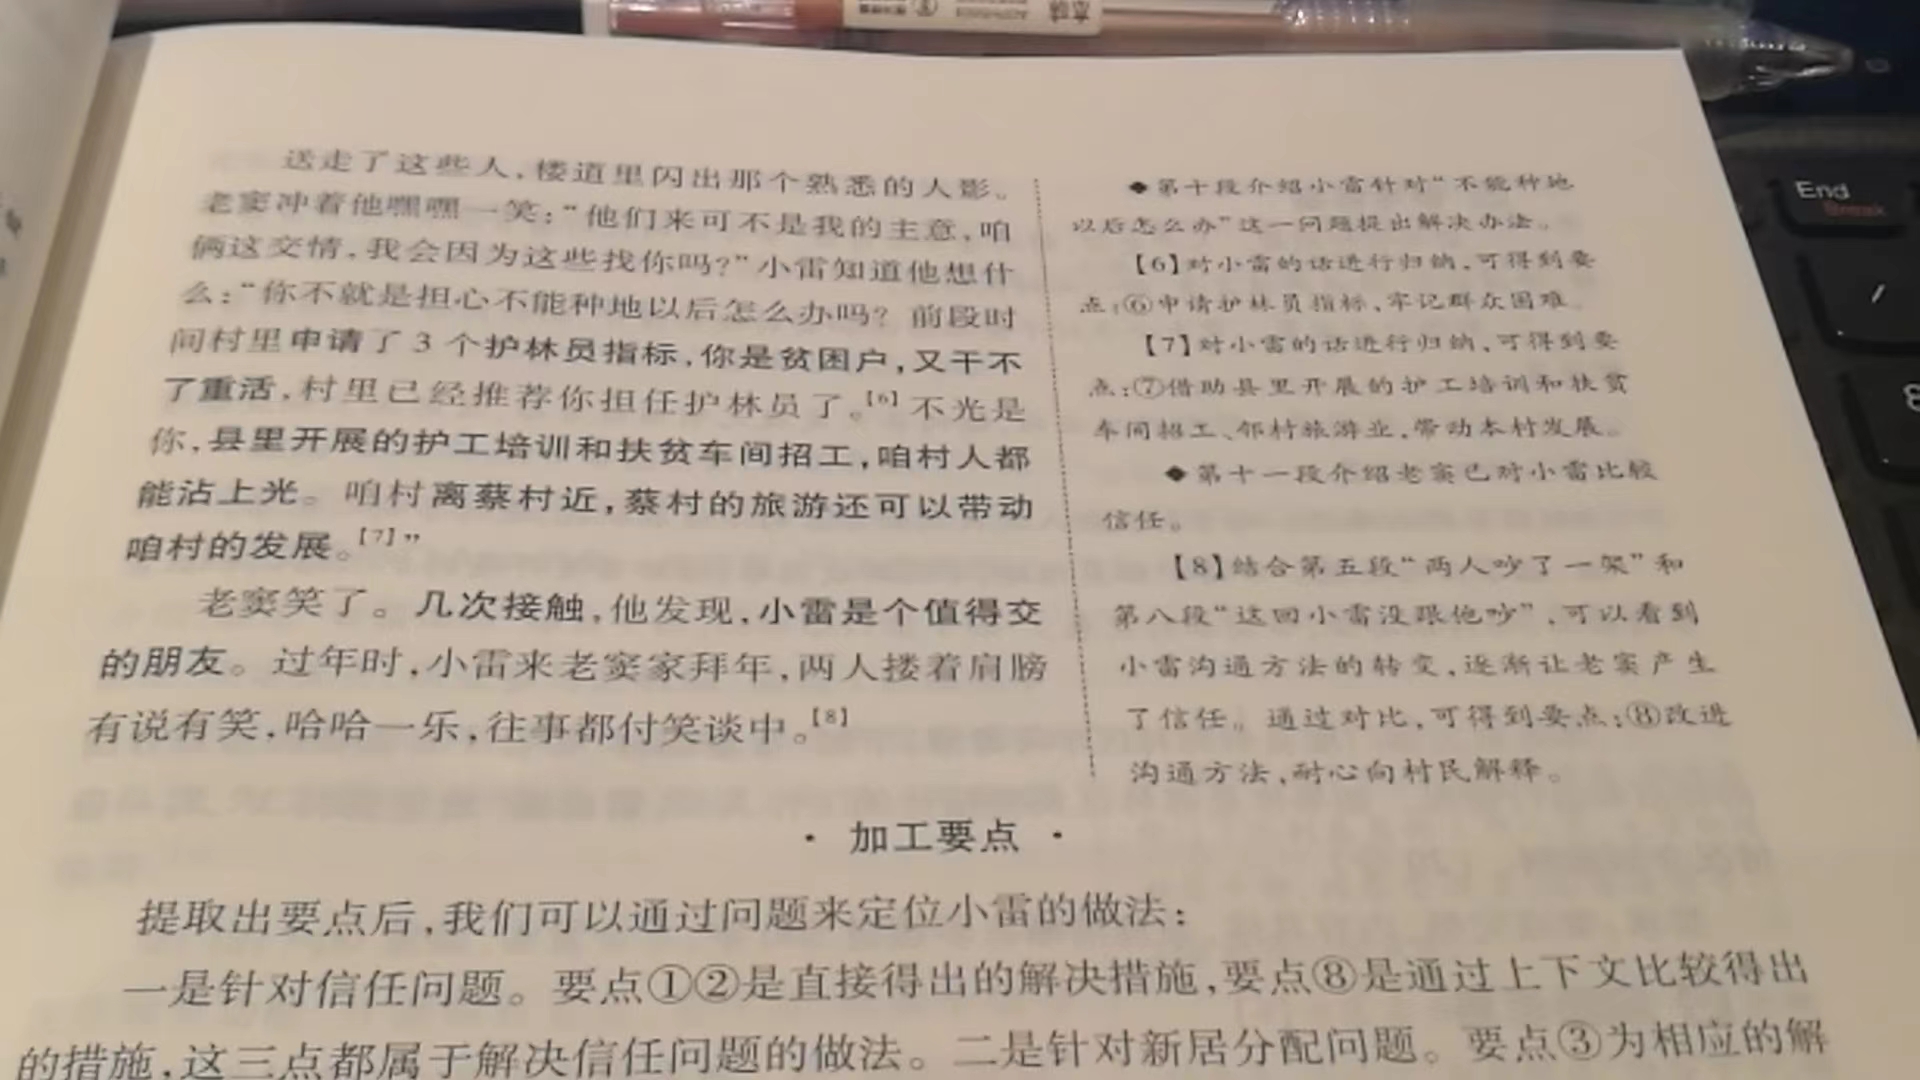 送走了这些人，楼道里闪出那个熟悉的人影。
老窦冲着他嘿嘿一笑：“他们来可不是我的主意，咱
俩这交情，我会因为这些找你吗？”小雷知道他想什
么：“你不就是担心不能种地以后怎么办吗？前段时
间村里申请了3个护林员指标，你是贫困户，又干不
了重活，村里已经推荐你担任护林员了。【6】不光是
你，县里开展的护工培训和扶贫车间招工，咱村人都
能沾上光。咱村离蔡村近，蔡村的旅游还可以带动
咱村的发展。【7】”
老窦笑了。几次接触，他发现，小雷是个值得交
的朋友。过年时，小雷来老窦家拜年，两人搂着肩膀
有说有笑，哈哈一乐，往事都付笑谈中。【8】
◆第十段介绍小雷针对“不能种地
以后怎么办”这一问题提出解决办法。
【6】对小雷的话进行归纳，可得到要
点：⑥申请护林员指标，牢记群众困难。
【7】对小雷的话进行归纳，可得到要
点：⑦借助县里开展的护工培训和扶贫
车间招工、邻村旅游业，带动本村发展。
◆第十一段介绍老窦已对小雷比较
信任。
【8】结合第五段“两人吵了一架”和
第八段“这回小雷没跟他吵”，可以看到
小雷沟通方法的转变，逐渐让老窦产生
了信任。通过对比，可得到要点：⑧改进
沟通方法，耐心向村民解释。
· 加工要点 ·
提取出要点后，我们可以通过问题来定位小雷的做法：
一是针对信任问题。要点①②是直接得出的解决措施，要点⑧是通过上下文比较得出
的措施，这三点都属于解决信任问题的做法。二是针对新居分配问题。要点③为相应的解
End
Break
/
8